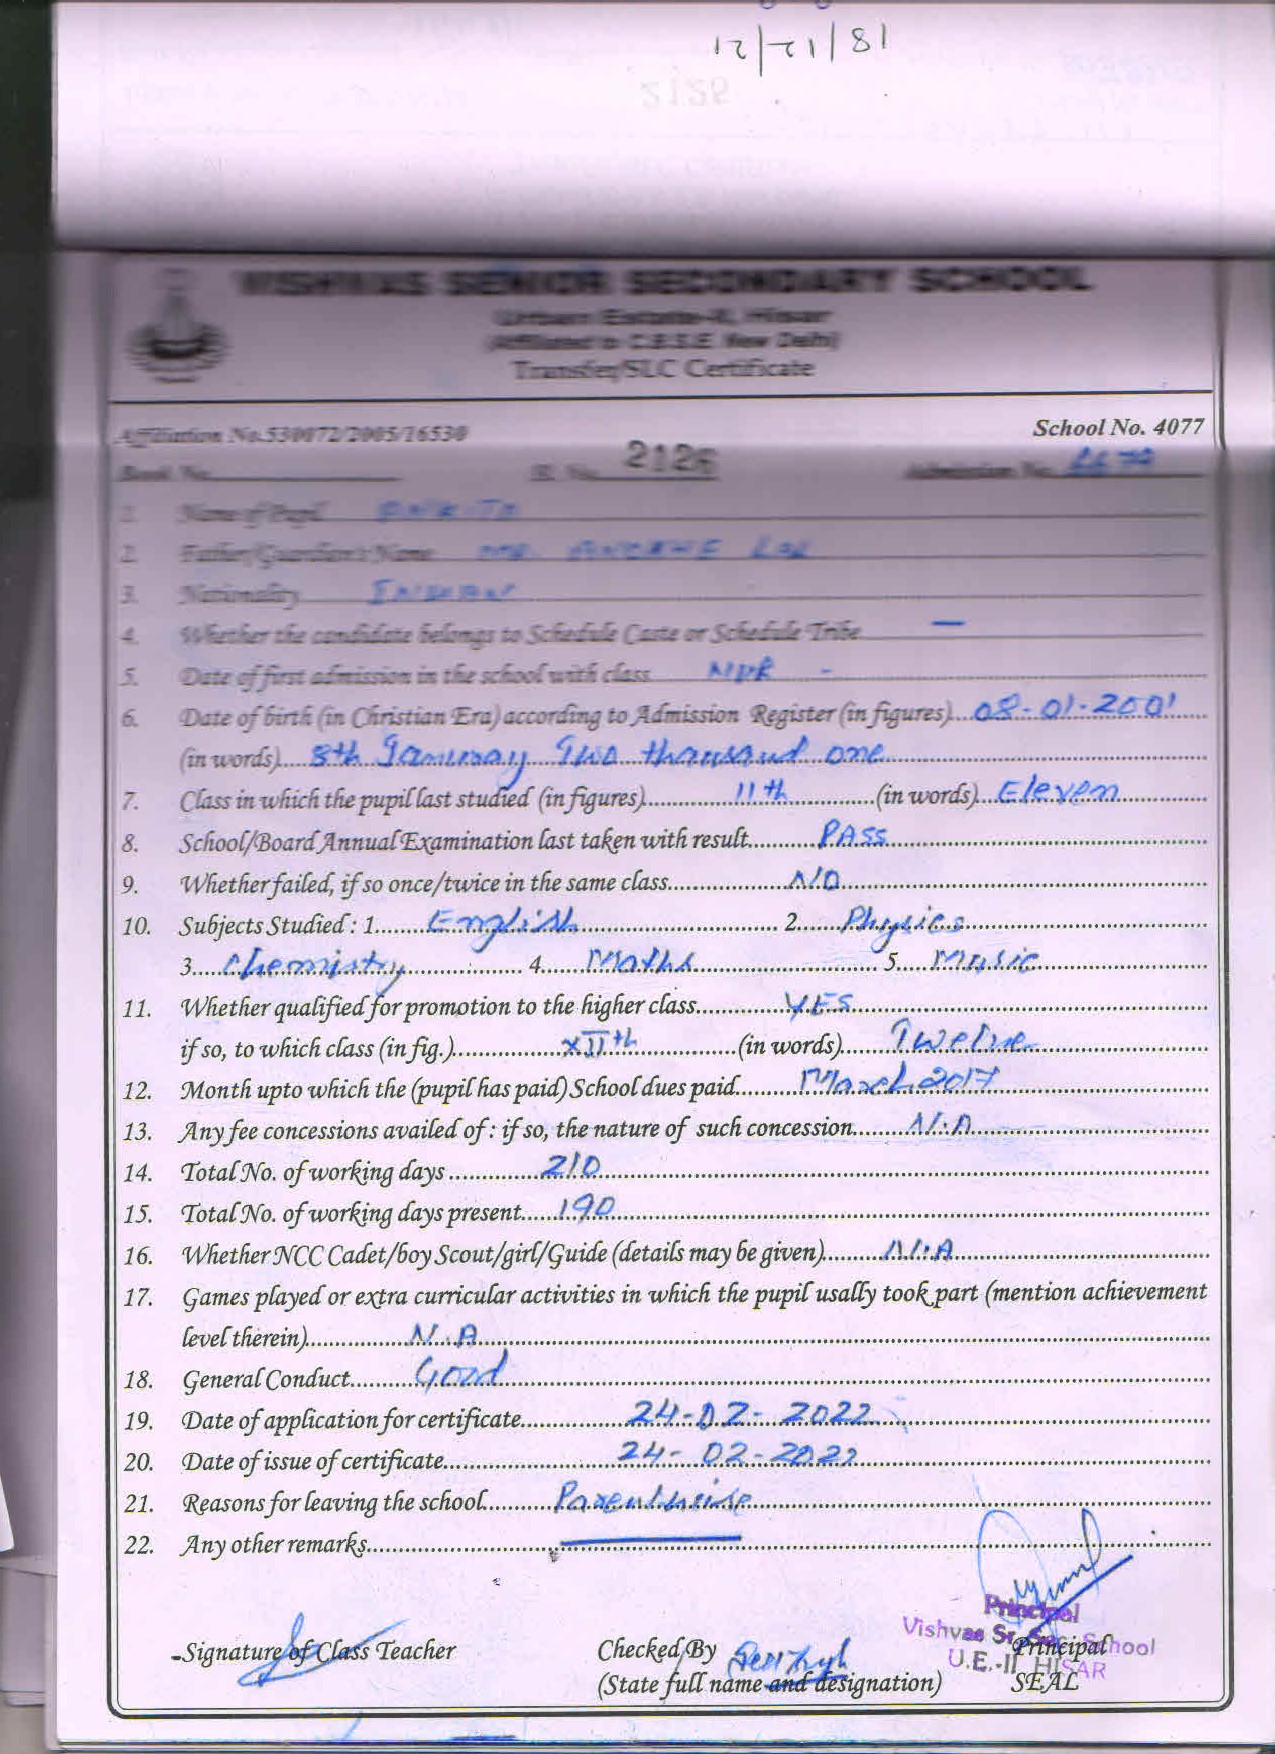 12/21/81
VISHVAS SENIOR SECONDARY SCHOOL
Urban Estate-II, Hisar
(Affiliated to C.B.S.E. New Delhi)
Transfer/SLC Certificate
Affiliation No.530072/2005/16530 School No. 4077
Book No. Sl. No. 2126 Admission No.
1. Name of Pupil
2. Father/Guardian's Name MR.
3. Nationality INDIAN
4. Whether the candidate belongs to Schedule Caste or Schedule Tribe —
5. Date of first admission in the school with class -
6. Date of birth (in Christian Era) according to Admission Register (in figures) 08-01-2001
(in words) 8th Januray Two thousand one
7. Class in which the pupil last studied (in figures) 11th (in words) Eleven
8. School/Board Annual Examination last taken with result PASS
9. Whether failed, if so once/twice in the same class NO
10. Subjects Studied : 1. English 2. Physics
3. Chemistry 4. Maths 5. Music
11. Whether qualified for promotion to the higher class YES
if so, to which class (in fig.) XIIth (in words) Twelve
12. Month upto which the (pupil has paid) School dues paid March 2017
13. Any fee concessions availed of : if so, the nature of such concession N.A
14. Total No. of working days 210
15. Total No. of working days present 190
16. Whether NCC Cadet/boy Scout/girl/Guide (details may be given) N.A
17. Games played or extra curricular activities in which the pupil usally took part (mention achievement
level therein) N.A
18. General Conduct Good
19. Date of application for certificate 24-02-2022
20. Date of issue of certificate 24-02-2022
21. Reasons for leaving the school
22. Any other remarks —
Signature of Class Teacher Checked By Principal
(State full name and designation) SEAL
Principal
Vishvas Sr. Sec. School
U.E.-II, HISAR